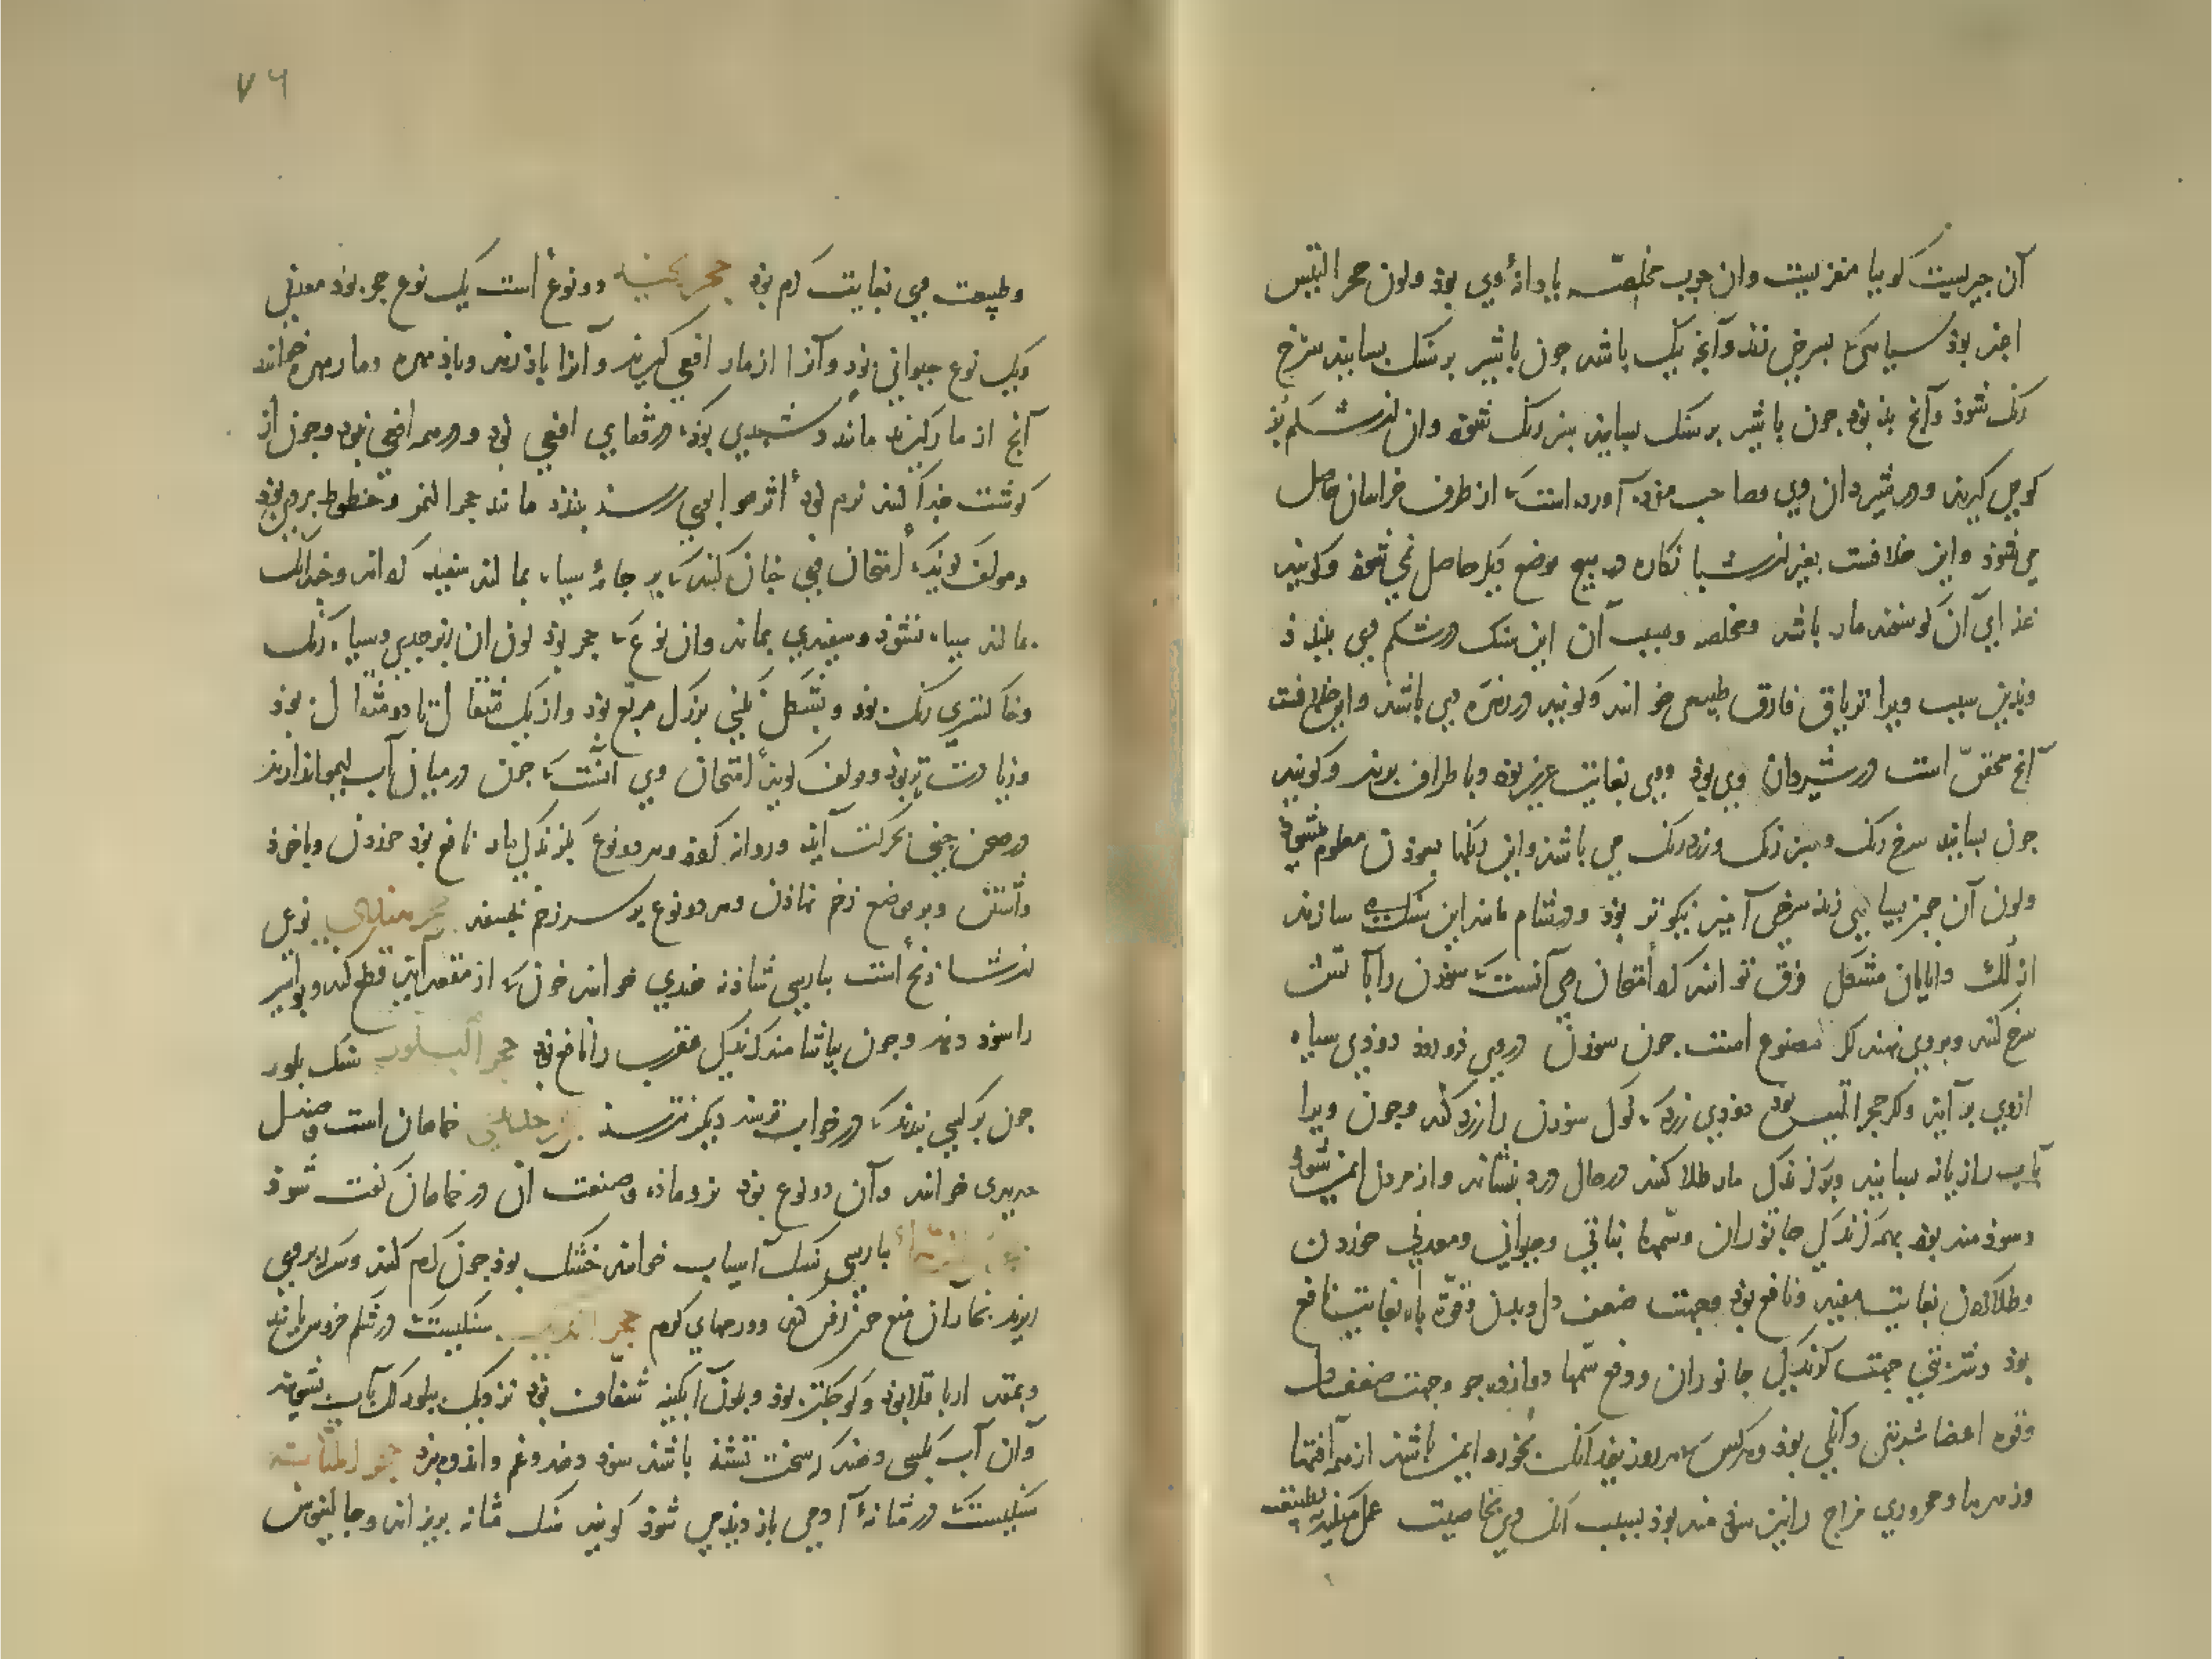 آن چیزیست کویا مغز نیست وان چوب مخلصه یا دانهٔ وی بوذ ولون حجر التیس
بوذ سیاهی کی بسرخی زند وآنچه نیک باشد جون با شیر بر سنک بسایند سرخ
رنک شوذ وآنج بد بوذ جون با شیر بر سنک بسایند سبز رنک شوذ وان از شکم بز
کوهی کیرند ودر شیردان وی وصاحب آورده است کی از طرف خراسان حاصل
می شوذ واین خلافست بغیر از شبانکاره در هیچ موضع دیکر حاصل نمی شوذ وکویند
غذای آن کوسفند مار باشد ومخلصه وبسبب آن این سنک در شکم وی بندذ
وبدین سبب ویرا تریاق فاروق طبیعی خوانند وکویند در زهره وی باشد واین خلافست
آنج محقق است در شیردان وی بوذ ووی بغایت عزیز بوذ وباطراف برند وکویند
جون بسایند سرخ رنک وسبز رنک وزرد رنک می باشد واین رنکها بسوذن معلوم شوذ
ولون آن جیز سیاهی زند سرخی آمیز نیکوتر بوذ ودر شام مانند این سنک سازند
دانایان مشکل فرق توانند کرد امتحان وی آنست کی سوزن را بآتش
سرخ کنند وبروی نهند اکر مصنوع است جون سوزن در وی فرو روذ دودی سیاه
ازوی بر آید واکر حجر التیس بوذ دودی زرد کی اول سوزن را زرد کند وجون ویرا
بآب رازیانه بسایند وبر کزندکی مار طلا کنند در حال درد بنشاند واز مردن ایمن شوذ
وسوذمند بوذ بهمه کزندکی جانوران وسمها نباتی وحیوانی ومعدنی خوردن
وطلا کردن بغایت مفید ونافع بوذ وجهت ضعف دل وبدن وقوة باه بغایت نافع
بوذ وشربتی جهت کزندکی جانوران ودفع سمها دوازده جو وجهت ضعف دل
وقوه اعضا شربتی دانکی بوذ وهرکس کی هر روز نیم دانک بخورد ایمن باشد از همه آفتها
وزهرها ومحروری مزاج را نیز سوذمند بوذ بسبب آنک وی بخاصیت عمل میکند نه بطبیعت
۷۶
وطبیعت وی بغایت کرم بوذ حجر الحیه دو نوع است یک نوع حجر بوذ معدنی
ویک نوع حیوانی بوذ وآنرا از مار افعی کیرند وآنرا باذزهر وباذمهره ومار مهره خوانند
آنج از مار کیرند مانند بوذ در قفای افعی بوذ ودر همه افعی نبوذ وجون از
کوشت جذا کنند نرم بوذ اثر هوا بوی رسد ببندذ مانند حجر وخطوط بر وی بوذ
ومولف کوید امتحان وی جنان کنند کی بر جامهٔ سیاه بمالند سفید کرداند وجندانک
بمالند سیاه نشوذ وسفیدی بماند وان نوع کی حجر بوذ لون ان زبرجدی وسیاه رنک
وخاکستری رنک بوذ وبشکل نکینی بزرک مربع بوذ واز یک مثقال تا دو مثقال بوذ
وزیادت نیز بوذ ومولف کوید امتحان وی آنست کی جون در میان آب لیمو اندازند
در صحن جینی بحرکت آید وروانه کردد وهر دو نوع کزندکی مار نافع بوذ خوردن وبا خوذ
داشتن وبر موضع زخم نهاذن وهر دو نوع بر سر زخم بجسبد حجر هندی نوعی
از شاذنج است بارسی شاذنه هندی خوانند خون کی از مقعد آید قطع کند وبواسیر
را سوذ دهد وجون بیاشامند کزندکی عقرب را نافع بوذ حجر البلور سنک بلور
جون بر کسی بندند کی در خواب ترسد دیکر نترسد خماهان است وصندل
حدیدی خوانند وآن دو نوع بوذ نر وماده وصفت آن در خماهان کفته شوذ
بارسی سنک آسیاب خوانند خشک بوذ جون کرم کنند وسرکه بر وی
ریزند بخار آن منع خون رفتن کند وورمهای کرم حجر الدیک سنکیست در شکم خروس یابند
وبمقدار باقلا بوذ وکوجکتر بوذ وبلون آبکینه شفاف بوذ نزدیک ببلور اکر بآب بشویند
وآن آب بکسی دهند کی سخت تشنه باشد سوذ دهد وغم واندوه ببرد حجر المثانه
سنکیست کی در مثانهٔ آدمی باز دید می شوذ کویند سنک مثانه بریزاند وجالینوس